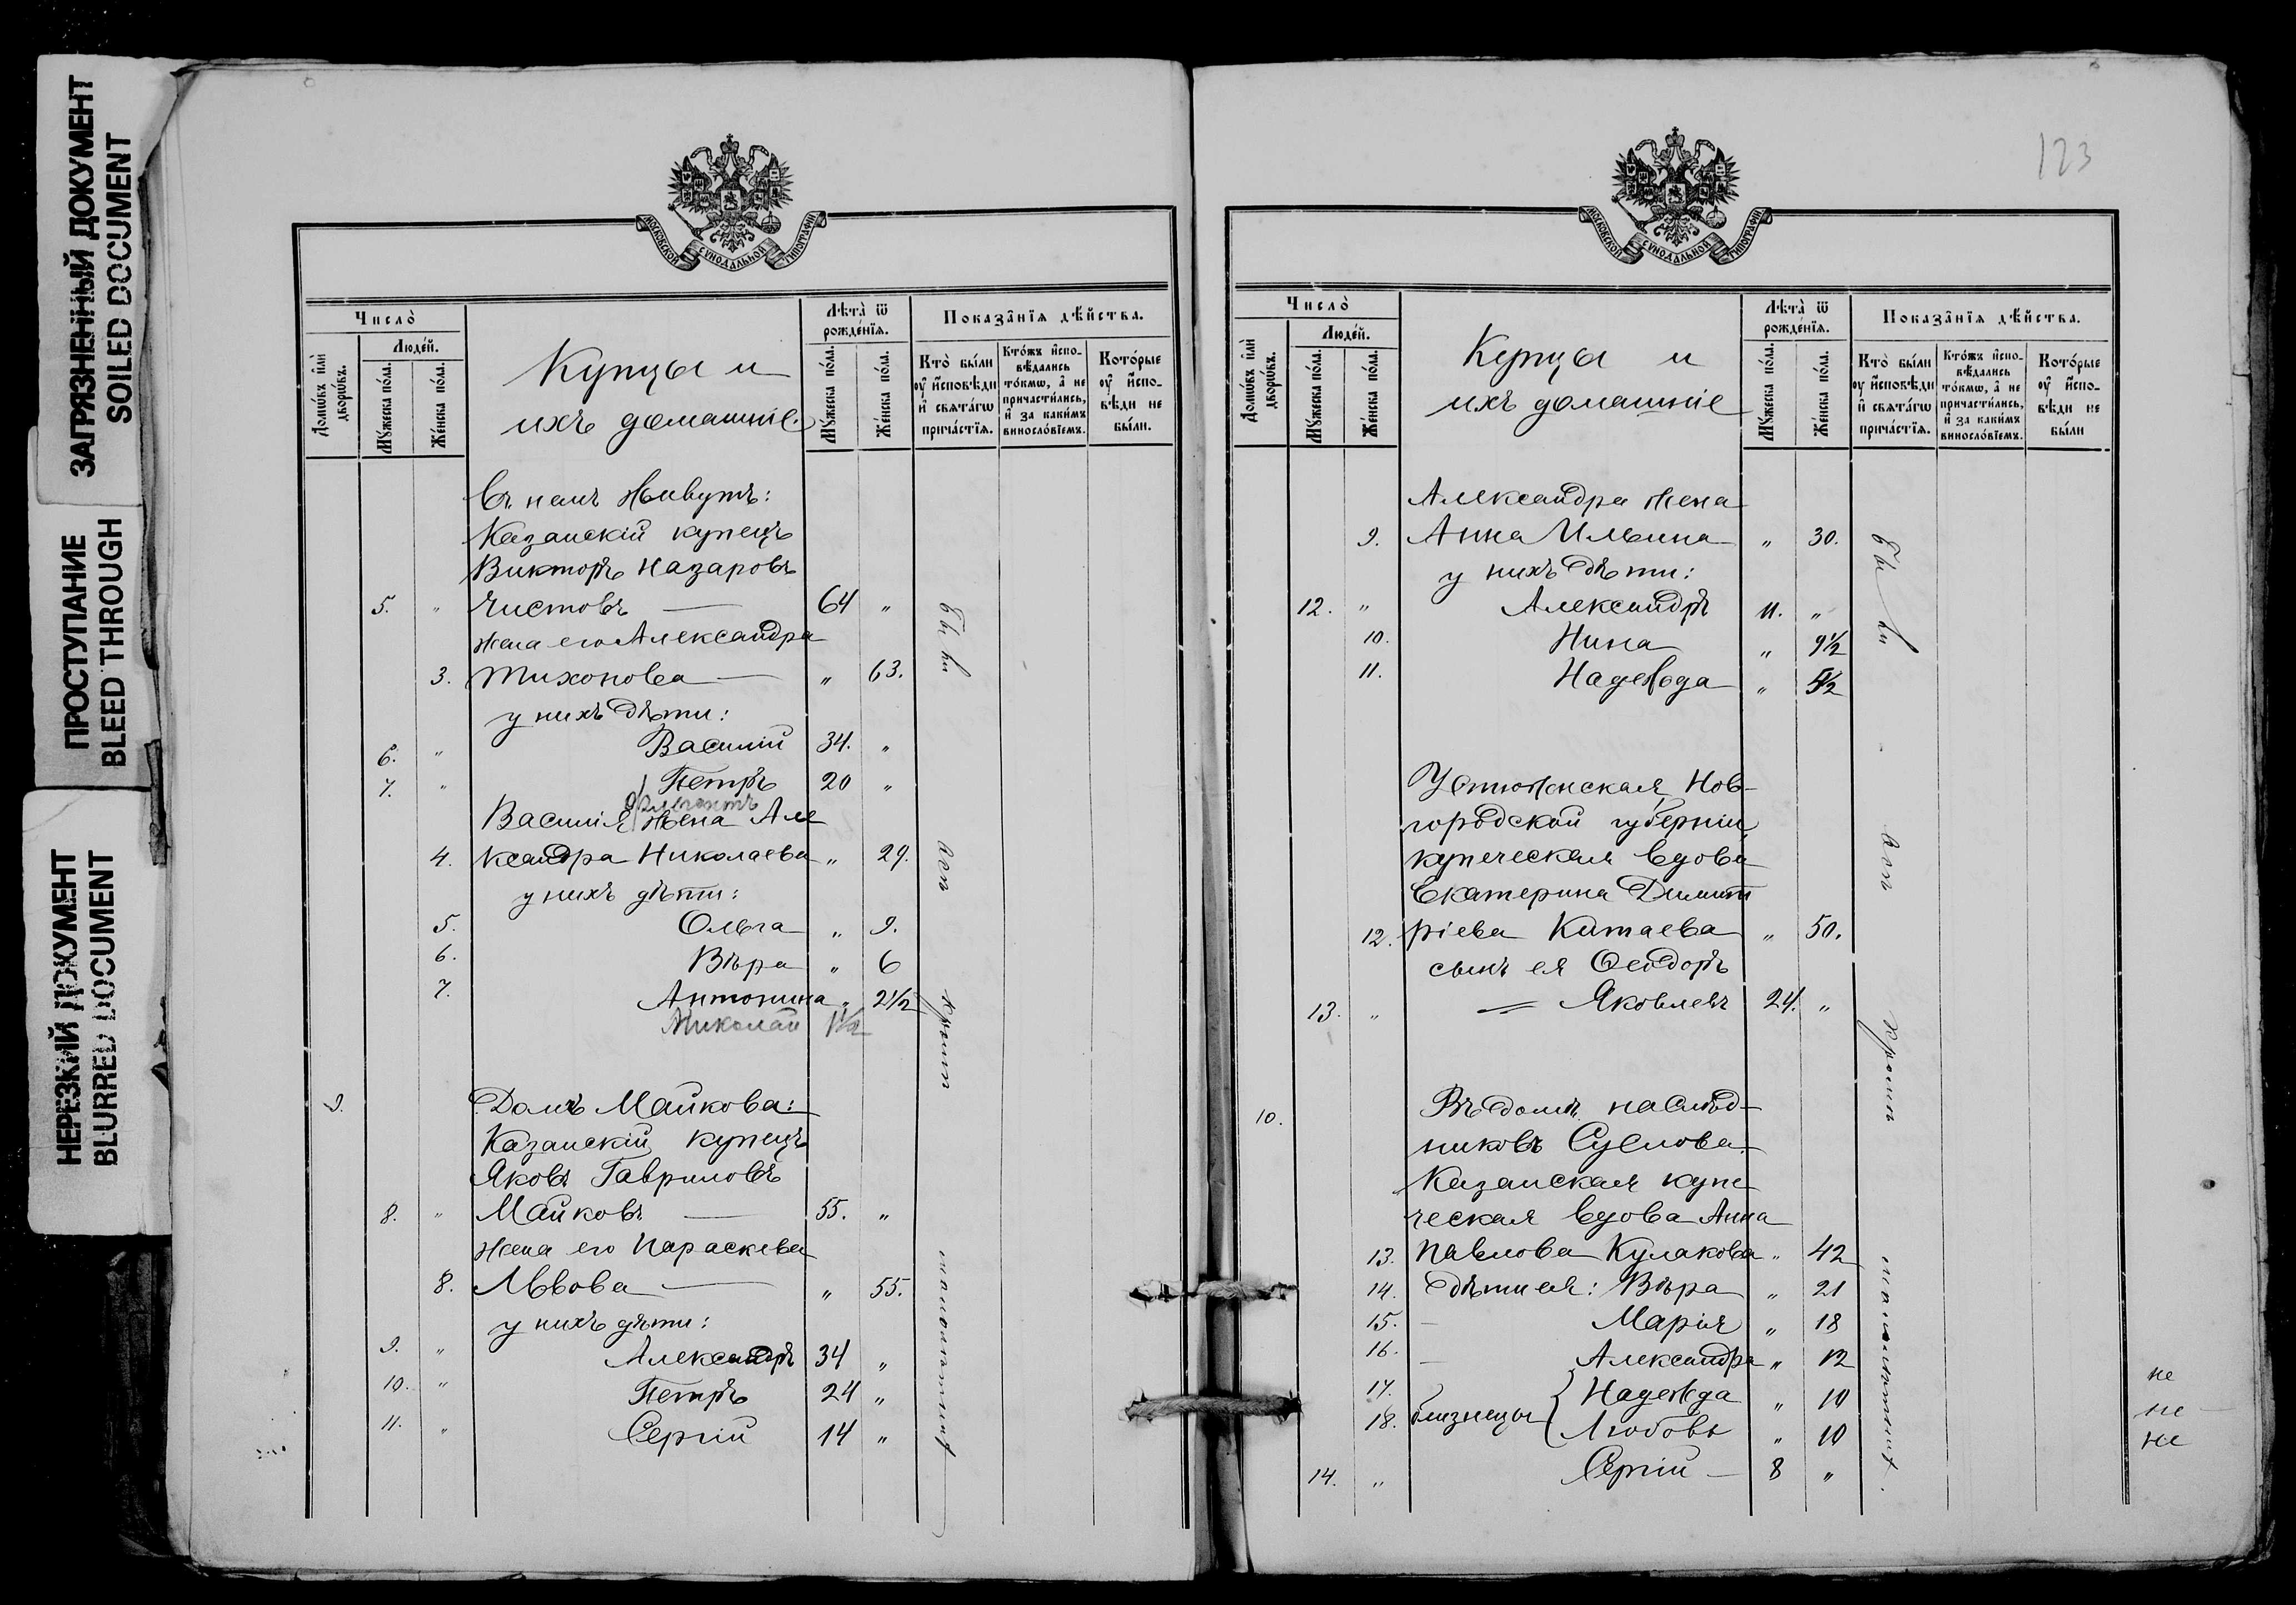 ЗАГРЯЗНЕННЫЙ ДОКУМЕНТ
SOILED DOCUMENT
ПРОСТУПАНИЕ
BLEED THROUGH
НЕРЕЗКИЙ ДОКУМЕНТ
BLURRED DOCUMENT
МОСКОВСКОЙ СѴНОДАЛЬНОЙ ТИПОГРАФІИ
Число̀
Домѡ́въ и҆лѝ дворѡ́въ.
Люде́й.
Мꙋ́жеска по́ла.
Же́нска по́ла.
Купцы и
ихъ домашніе.
Лѣта̀ ѿ рожде́нїѧ.
Мꙋ́жеска по́ла.
Же́нска по́ла.
Показа̑нїѧ дѣ́йства.
Кто̀ бы́ли оу҆ и҆сповѣ́ди и҆ свѧта́гѡ прича́стїѧ.
Кто́жъ и҆спо-вѣ́дались то́кмѡ, а҆ не причасти́лись, и҆ за каки́мъ винослѡ́вїемъ.
Кото́рые оу҆ и҆спо-вѣ́ди не бы́ли.
Въ немъ живутъ:
Казанскій купецъ
Викторъ Назаровъ
5. " Чистовъ — 64 "
жена его Александра
3. Тихонова — " 63.
у нихъ дѣти:
6. " Василій 34. "
7. " Петръ 20 "
Василія жена Але
4. ксандра Николаева " 29.
у нихъ дѣти:
5. Ольга " 9.
6. Вѣра " 6
7. Антонина " 2½
Николай 1½
9. Домъ Майкова:
Казанскій купецъ
Яковъ Гавриловъ
8. " Майковъ — 55. "
жена его Параскева
8. Львова — " 55.
у нихъ дѣти:
9. " Александръ 34 "
10. " Петръ 24 "
11. " Сергій 14 "
были
123
МОСКОВСКОЙ СѴНОДАЛЬНОЙ ТИПОГРАФІИ
Число̀
Домѡ́въ и҆лѝ дворѡ́въ.
Люде́й.
Мꙋ́жеска по́ла.
Же́нска по́ла.
Купцы и
ихъ домашніе
Лѣта̀ ѿ рожде́нїѧ.
Мꙋ́жеска по́ла.
Же́нска по́ла.
Показа̑нїѧ дѣ́йства.
Кто̀ бы́ли оу҆ и҆сповѣ́ди и҆ свѧта́гѡ прича́стїѧ.
Кто́жъ и҆спо-вѣ́дались то́кмѡ, а҆ не причасти́лись, и҆ за каки́мъ винослѡ́вїемъ.
Кото́рые оу҆ и҆спо-вѣ́ди не бы́ли
Александра жена
9. Анна Ильина " 30.
у нихъ дѣти:
12. " Александръ 11. "
10. Нина " 9½
11. Надежда " 5½
Устюженская Нов-
городской губерніи
купеческая вдова
Екатерина Димит
12. ріева Китаева " 50.
сынъ ея Ѳеодоръ
13. " = Яковлевъ 24. "
10. Въ домѣ наслѣд-
никовъ Суслова.
Казанская купе
ческая вдова Анна
13. Павлова Кулакова " 42
14. дѣти ея: Вѣра " 21
15. — Марія " 18
16. — Александра " 12
17. близнецы { Надежда " 10
18. Любовь " 10
14. " Сергій — 8 "
были
не
не
не